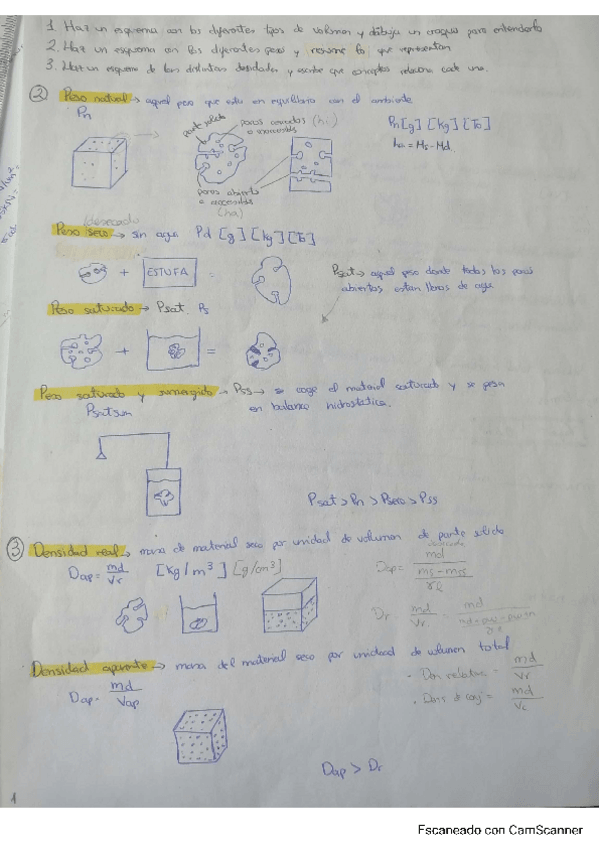 1. Haz un esquema con los diferentes tipos de volumen y dibuja un croquis para entenderlo
2. Haz un esquema con los diferentes pesos y resume lo que representan
3. Haz un esquema de las distintas densidades y escribe que conceptos relaciona cada una.
② Peso natural → aquel peso que esta en equilibrio con el ambiente
Pn
parte solida
poros cerrados (hi)
o inaccesibles
Pn [g] [Kg] [To]
ha = Ms - Md.
poros abiertos
o accesibles
(ha)
/desecado
Peso seco → sin agua Pd [g] [kg] [To]
+ ESTUFA =
Psat → aquel peso donde todos los poros
abiertos estan llenos de agua
Peso saturado → Psat. Ps
+ =
Peso saturado y sumergido → Pss → se coge el material saturado y se pesa
en balanza hidrostatica.
Psatsum
Psat > Pn > Pseco > Pss
③ Densidad real → masa de material seco por unidad de volumen de parte solida
Dap = md/Vr [Kg/m³] [g/cm³]
Dap =
Dr = md/Vr =
Densidad aparente → masa del material seco por unidad de volumen total
Dap = md/Vap
· Den relativa = md/Vr
= md/Vc
Dap > Dr
1
Escaneado con CamScanner